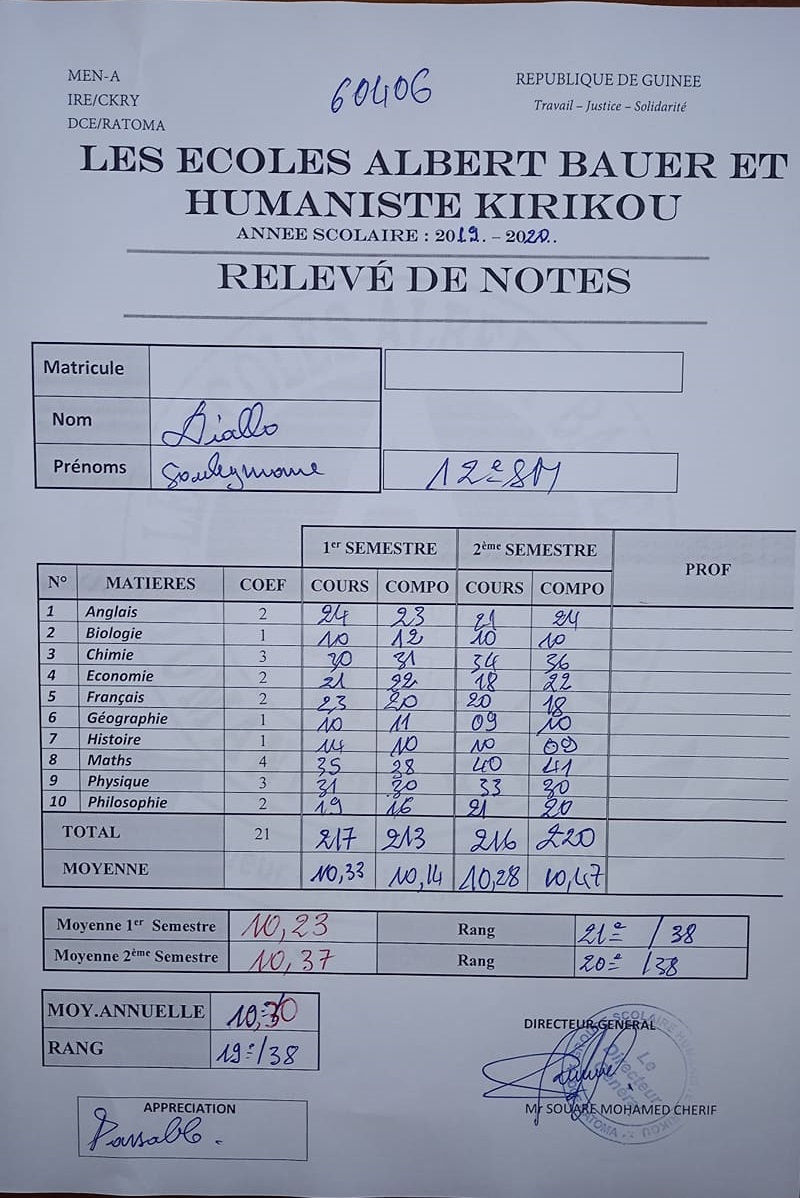 MEN-A
IRE/CKRY
DCE/RATOMA
60406
REPUBLIQUE DE GUINEE
Travail – Justice – Solidarité
LES ECOLES ALBERT BAUER ET
HUMANISTE KIRIKOU
ANNEE SCOLAIRE : 2019. – 2020..
RELEVÉ DE NOTES
Matricule
Nom Diallo
Prénoms Souleymane 12e SM
1er SEMESTRE 2ème SEMESTRE PROF
N° MATIERES COEF COURS COMPO COURS COMPO
1 Anglais 2 24 23 21 24
2 Biologie 1 10 12 10 10
3 Chimie 3 30 31 34 36
4 Economie 2 21 22 18 22
5 Français 2 23 20 20 18
6 Géographie 1 10 11 09 10
7 Histoire 1 14 10 10 09
8 Maths 4 35 38 40 41
9 Physique 3 31 30 33 30
10 Philosophie 2 19 16 21 20
TOTAL 21 217 213 216 220
MOYENNE 10,33 10,14 10,28 10,47
Moyenne 1er Semestre 10,23 Rang 21e /38
Moyenne 2ème Semestre 10,37 Rang 20e /38
MOY.ANNUELLE 10,30
RANG 19e/38
DIRECTEUR GENERAL
Le
Directeur
Général
Mr SOUARE MOHAMED CHERIF
APPRECIATION
Passable.